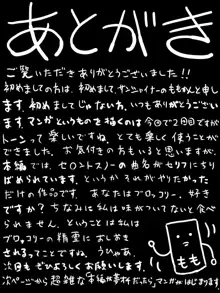 あとがき
ご覧いただきありがとうございました!!
初めましての方は、初めまして。サンシャイナーのももめんと申し
ます。初めましてじゃない方、いつもありがとうございま
す。マンガというものを描くのは今回で2回目ですが
トーンって楽しいですね。とても楽しく使うことが
できました。お気付きの方もいると思いますが、
本編では、セロントスノーの曲名がセリフにちり
ばめられています。というかそれがやりたかった
だけの作品です。あなたはブロッコリー、好き
ですか?ちなみに私は味がついてないと食べ
られません。ということは私は
ブロッコリーの精霊におしおき
されるってことですね。うひゃあ。
次回もぜひよろしくお願いします。
次ページから超雑な本編が素材だったらマンガがはじまります
もも